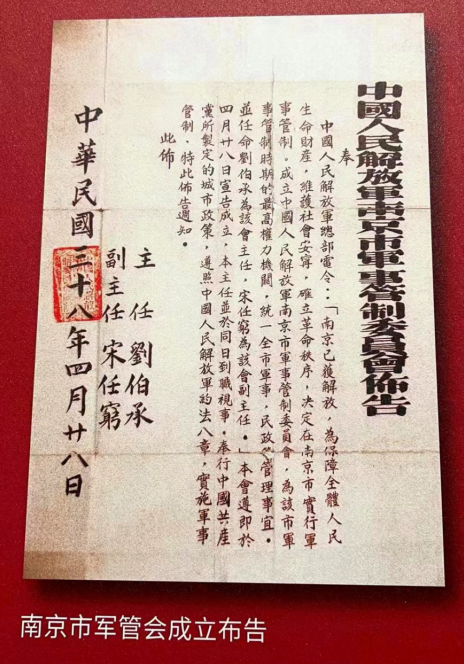 中國人民解放軍南京市軍事管制委員會佈告
奉
中國人民解放軍總部電令：「南京已獲解放，為保障全體人民
生命財產，維護社會安寧，確立革命秩序，决定在南京市實行軍
事管制。成立中國人民解放軍南京市軍事管制委員會，為該市軍
事管制時期的最高權力機關，統一全市軍事，民政等管理事宜。
並任命劉伯承為該會主任，宋任窮為該會副主任。」本會遵即於
四月廿八日宣告成立，本主任並於同日到職視事。奉行中國共產
黨所製定的城市政策，遵照中國人民解放軍約法八章，實施軍事
管制，特此佈告週知。
此佈
主任 劉伯承
副主任 宋任窮
中華民國三十八年四月廿八日
南京市军管会成立布告